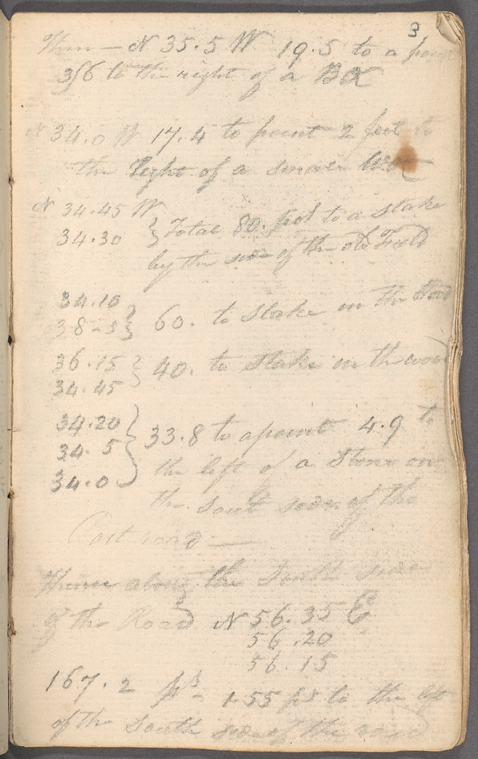 3
Then — N 35.5 W 19.5 to a point
3/6 to the right of a Box
N 34.0 W 17.4 to point 2 foot to
the right of a small
N 34.45 W
34.30 } Total 80. pos to a stake
by the side of the old Field
34.10
38-5 } 60. to Stake in the
36.15
34.45 } 40. to Stake in the wood
34.20
34.5
34.0 } 33.8 to a point 4.9 to
the left of a Stone on
the South side of the
Post road —
Thence along the South side
of the Road N 56.35 E
56.20
56.15
167.2 ps - 1.55 ps to the left
of the South side of the road